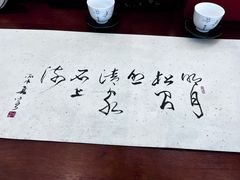 明月
松间
照
清泉
石上
流